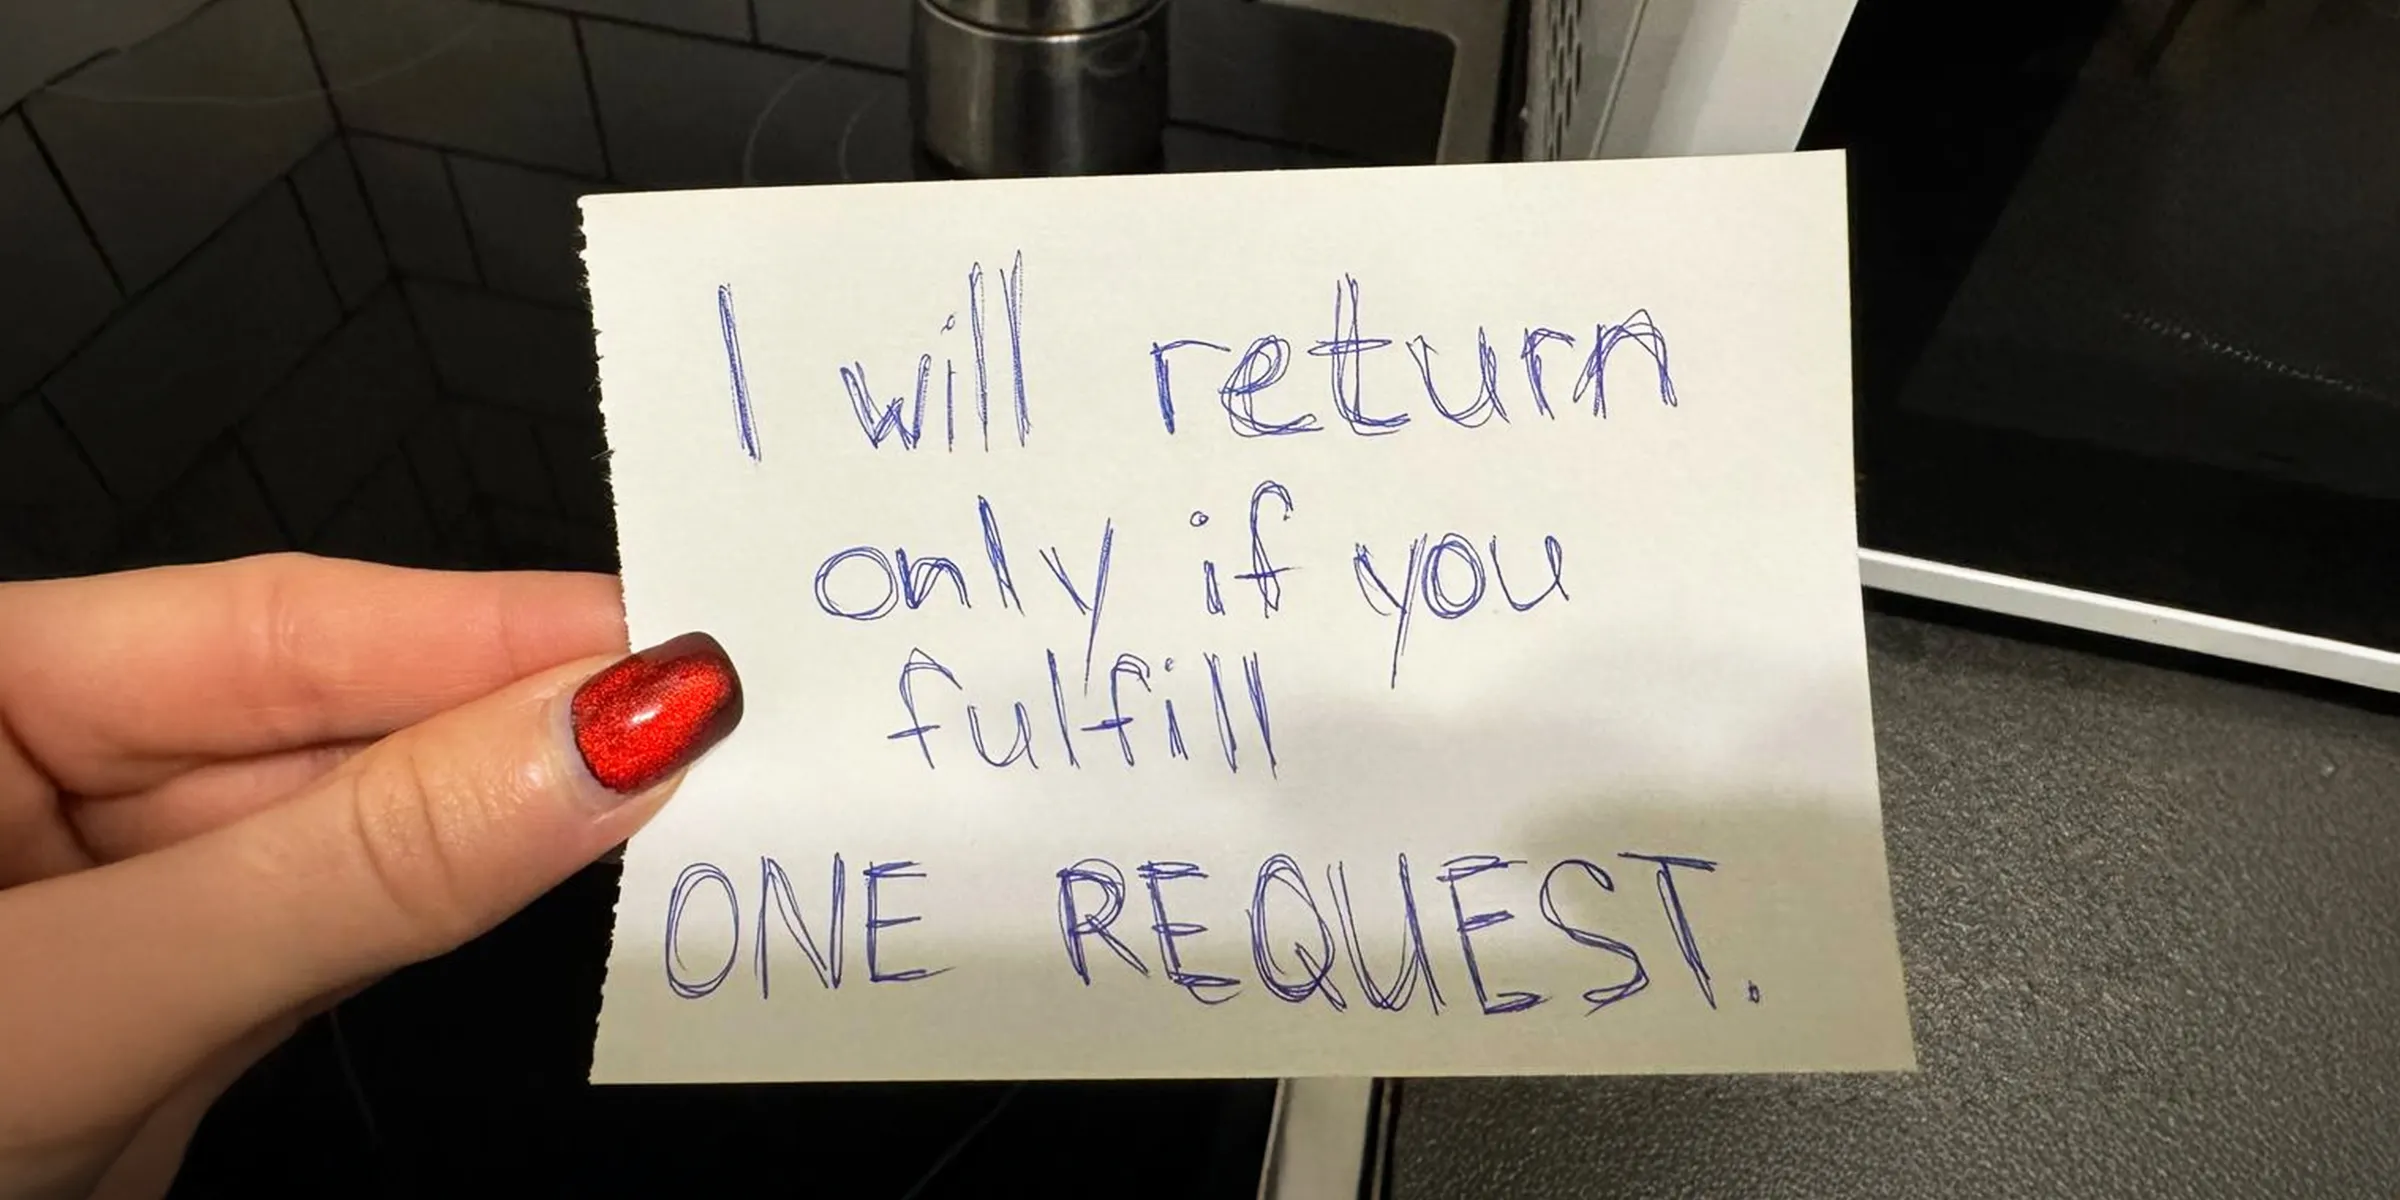 I will return
only if you
fulfill
ONE REQUEST.